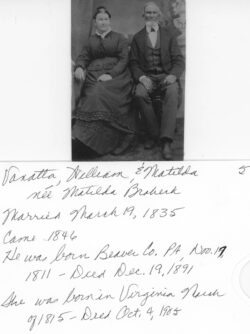 Vanatta, William, & Matilda 5
née Matilda Broberk
Married March 19, 1835
Came 1846
He was born Beaver Co. PA, Nov. 19
1811 - Died Dec. 19, 1891
She was born in Virginia March
of 1815 - Died Oct, 9, 1905